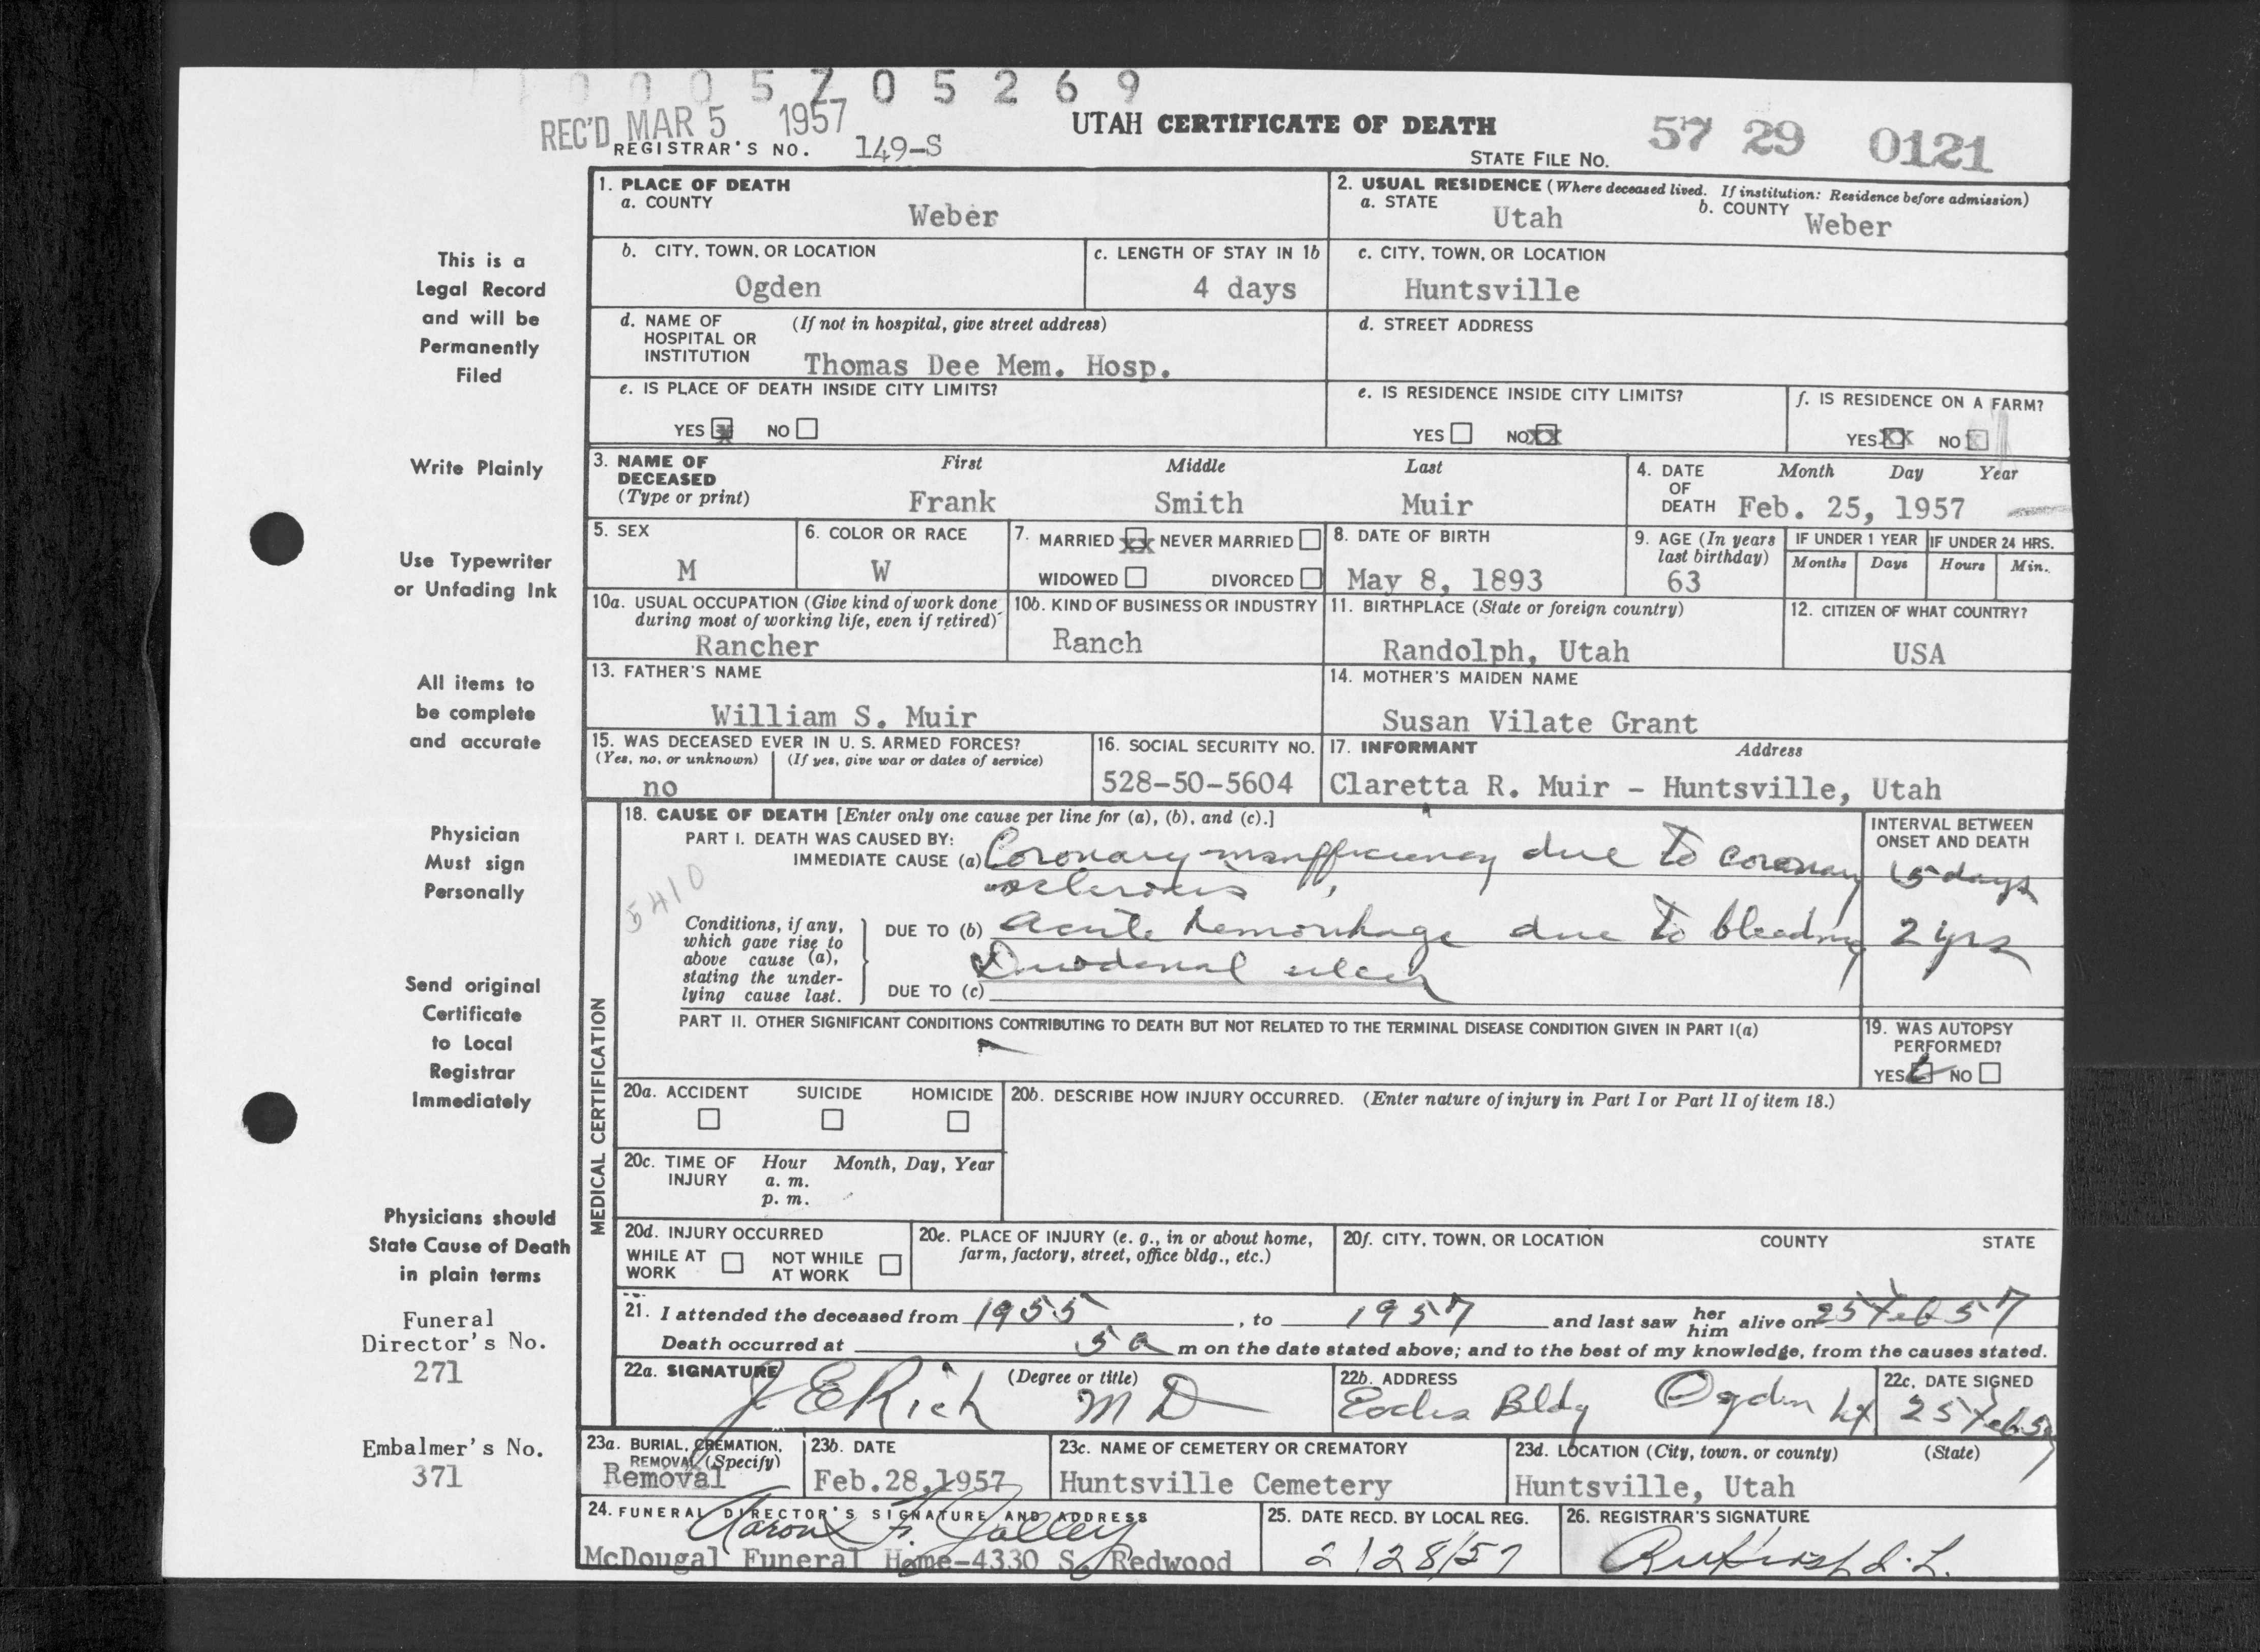 0 0 0 5 7 0 5 2 6 9
REC'D MAR 5 1957
REGISTRAR'S NO. 149-S
UTAH CERTIFICATE OF DEATH
STATE FILE NO. 57 29 0121
This is a
Legal Record
and will be
Permanently
Filed
Write Plainly
Use Typewriter
or Unfading Ink
All items to
be complete
and accurate
Physician
Must sign
Personally
Send original
Certificate
to Local
Registrar
Immediately
Physicians should
State Cause of Death
in plain terms
Funeral
Director's No.
271
Embalmer's No.
371
1. PLACE OF DEATH
a. COUNTY
Weber
2. USUAL RESIDENCE (Where deceased lived. If institution: Residence before admission)
a. STATE Utah b. COUNTY Weber
b. CITY, TOWN, OR LOCATION
Ogden
c. LENGTH OF STAY IN 1b
4 days
c. CITY, TOWN, OR LOCATION
Huntsville
d. NAME OF (If not in hospital, give street address)
HOSPITAL OR
INSTITUTION Thomas Dee Mem. Hosp.
d. STREET ADDRESS
e. IS PLACE OF DEATH INSIDE CITY LIMITS?
YES X NO
e. IS RESIDENCE INSIDE CITY LIMITS?
YES NO XX
f. IS RESIDENCE ON A FARM?
YES XX NO X
3. NAME OF DECEASED (Type or print)
First Middle Last
Frank Smith Muir
4. DATE OF DEATH Month Day Year
Feb. 25, 1957
5. SEX
M
6. COLOR OR RACE
W
7. MARRIED XX NEVER MARRIED
WIDOWED DIVORCED
8. DATE OF BIRTH
May 8, 1893
9. AGE (In years last birthday)
63
IF UNDER 1 YEAR
Months Days
IF UNDER 24 HRS.
Hours Min.
10a. USUAL OCCUPATION (Give kind of work done
during most of working life, even if retired)
Rancher
10b. KIND OF BUSINESS OR INDUSTRY
Ranch
11. BIRTHPLACE (State or foreign country)
Randolph, Utah
12. CITIZEN OF WHAT COUNTRY?
USA
13. FATHER'S NAME
William S. Muir
14. MOTHER'S MAIDEN NAME
Susan Vilate Grant
15. WAS DECEASED EVER IN U. S. ARMED FORCES?
(Yes, no, or unknown) (If yes, give war or dates of service)
no
16. SOCIAL SECURITY NO.
528-50-5604
17. INFORMANT Address
Claretta R. Muir - Huntsville, Utah
MEDICAL CERTIFICATION
18. CAUSE OF DEATH [Enter only one cause per line for (a), (b), and (c).]
PART I. DEATH WAS CAUSED BY:
IMMEDIATE CAUSE (a) Coronary insufficiency due to coronary
sclerosis
INTERVAL BETWEEN
ONSET AND DEATH
5 days
5410
Conditions, if any,
which gave rise to
above cause (a),
stating the under-
lying cause last.
DUE TO (b) Acute hemorrhage due to bleeding
2 yrs
Duodenal ulcer
DUE TO (c)
PART II. OTHER SIGNIFICANT CONDITIONS CONTRIBUTING TO DEATH BUT NOT RELATED TO THE TERMINAL DISEASE CONDITION GIVEN IN PART I(a)
19. WAS AUTOPSY
PERFORMED?
YES NO
20a. ACCIDENT SUICIDE HOMICIDE
20b. DESCRIBE HOW INJURY OCCURRED. (Enter nature of injury in Part I or Part II of item 18.)
20c. TIME OF INJURY Hour Month, Day, Year
a. m.
p. m.
20d. INJURY OCCURRED
WHILE AT WORK NOT WHILE AT WORK
20e. PLACE OF INJURY (e. g., in or about home,
farm, factory, street, office bldg., etc.)
20f. CITY, TOWN, OR LOCATION COUNTY STATE
21. I attended the deceased from 1955, to 1957 and last saw her him alive on 25 Feb 57
Death occurred at 5 a m on the date stated above; and to the best of my knowledge, from the causes stated.
22a. SIGNATURE (Degree or title)
J E Rich M D
22b. ADDRESS
Eccles Bldg Ogden Ut
22c. DATE SIGNED
25 Feb 57
23a. BURIAL, CREMATION,
REMOVAL (Specify)
Removal
23b. DATE
Feb.28,1957
23c. NAME OF CEMETERY OR CREMATORY
Huntsville Cemetery
23d. LOCATION (City, town, or county) (State)
Huntsville, Utah
24. FUNERAL DIRECTOR'S SIGNATURE AND ADDRESS
Aaron F. Jolley
McDougal Funeral Home-4330 S. Redwood
25. DATE RECD. BY LOCAL REG.
2/28/57
26. REGISTRAR'S SIGNATURE